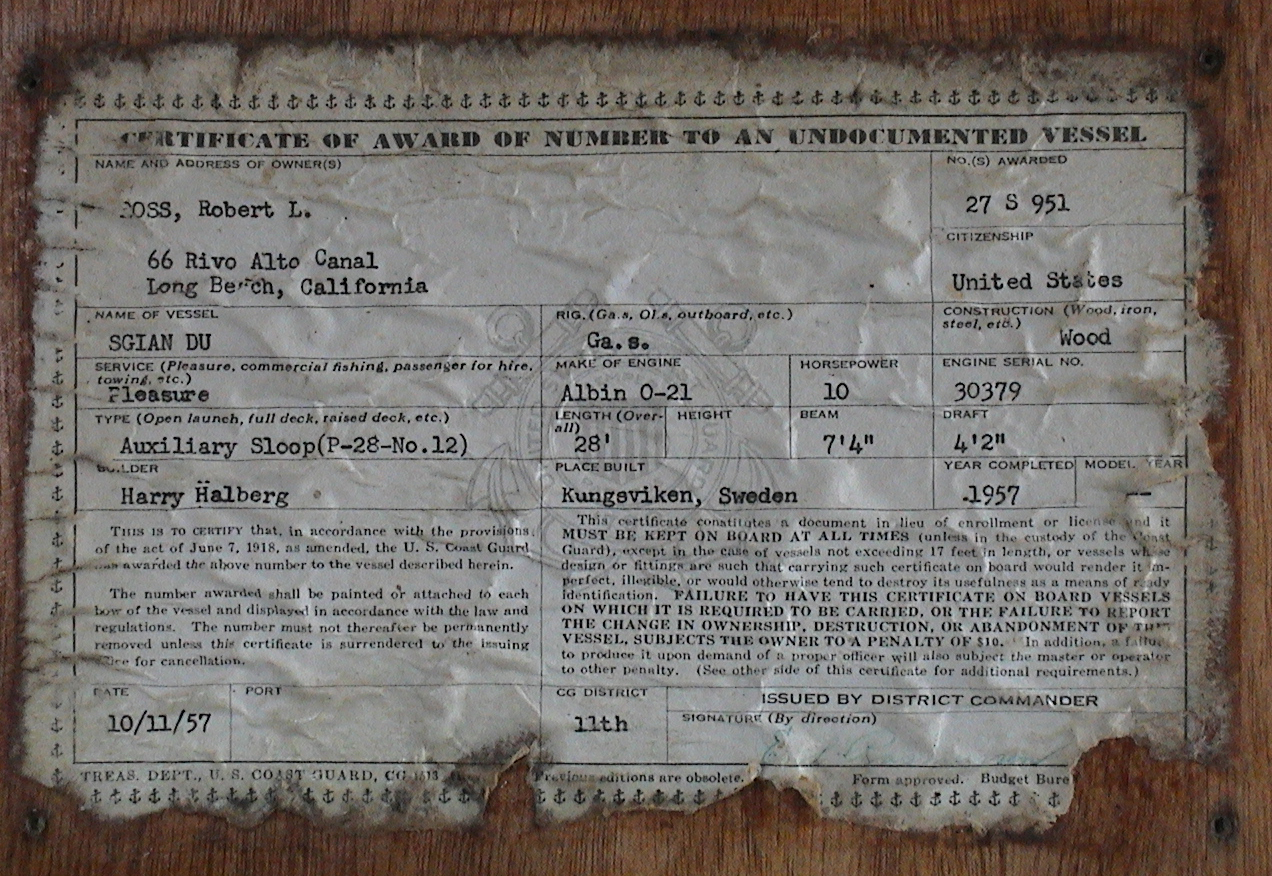 CERTIFICATE OF AWARD OF NUMBER TO AN UNDOCUMENTED VESSEL
NAME AND ADDRESS OF OWNER(S)
NO.(S) AWARDED
OSS, Robert L.
27 S 951
66 Rivo Alto Canal
CITIZENSHIP
Long Beach, California
United States
NAME OF VESSEL
RIG. (Ga.s, Ol.s, outboard, etc.)
CONSTRUCTION (Wood, iron,
steel, etc.)
SGIAN DU
Ga.s.
Wood
SERVICE (Pleasure, commercial fishing, passenger for hire,
towing, etc.)
MAKE OF ENGINE
HORSEPOWER
ENGINE SERIAL NO.
Pleasure
Albin O-21
10
30379
TYPE (Open launch, full deck, raised deck, etc.)
LENGTH (Over-
all)
HEIGHT
BEAM
DRAFT
Auxiliary Sloop(P-28-No.12)
28'
7'4"
4'2"
BUILDER
PLACE BUILT
YEAR COMPLETED
MODEL YEAR
Harry Halberg
Kungsviken, Sweden
1957
--
THIS IS TO CERTIFY that, in accordance with the provisions
of the act of June 7, 1918, as amended, the U. S. Coast Guard
has awarded the above number to the vessel described herein.
The number awarded shall be painted or attached to each
bow of the vessel and displayed in accordance with the law and
regulations. The number must not thereafter be permanently
removed unless this certificate is surrendered to the issuing
office for cancellation.
This certificate constitutes a document in lieu of enrollment or license and it
MUST BE KEPT ON BOARD AT ALL TIMES (unless in the custody of the Coast
Guard), except in the case of vessels not exceeding 17 feet in length, or vessels whose
design or fittings are such that carrying such certificate on board would render it im-
perfect, illegible, or would otherwise tend to destroy its usefulness as a means of ready
identification. FAILURE TO HAVE THIS CERTIFICATE ON BOARD VESSELS
ON WHICH IT IS REQUIRED TO BE CARRIED, OR THE FAILURE TO REPORT
THE CHANGE IN OWNERSHIP, DESTRUCTION, OR ABANDONMENT OF THE
VESSEL, SUBJECTS THE OWNER TO A PENALTY OF $10. In addition, a failure
to produce it upon demand of a proper officer will also subject the master or operator
to other penalty. (See other side of this certificate for additional requirements.)
DATE
PORT
CG DISTRICT
ISSUED BY DISTRICT COMMANDER
10/11/57
11th
SIGNATURE (By direction)
TREAS. DEPT., U. S. COAST GUARD, CG
Previous editions are obsolete.
Form approved. Budget Bure